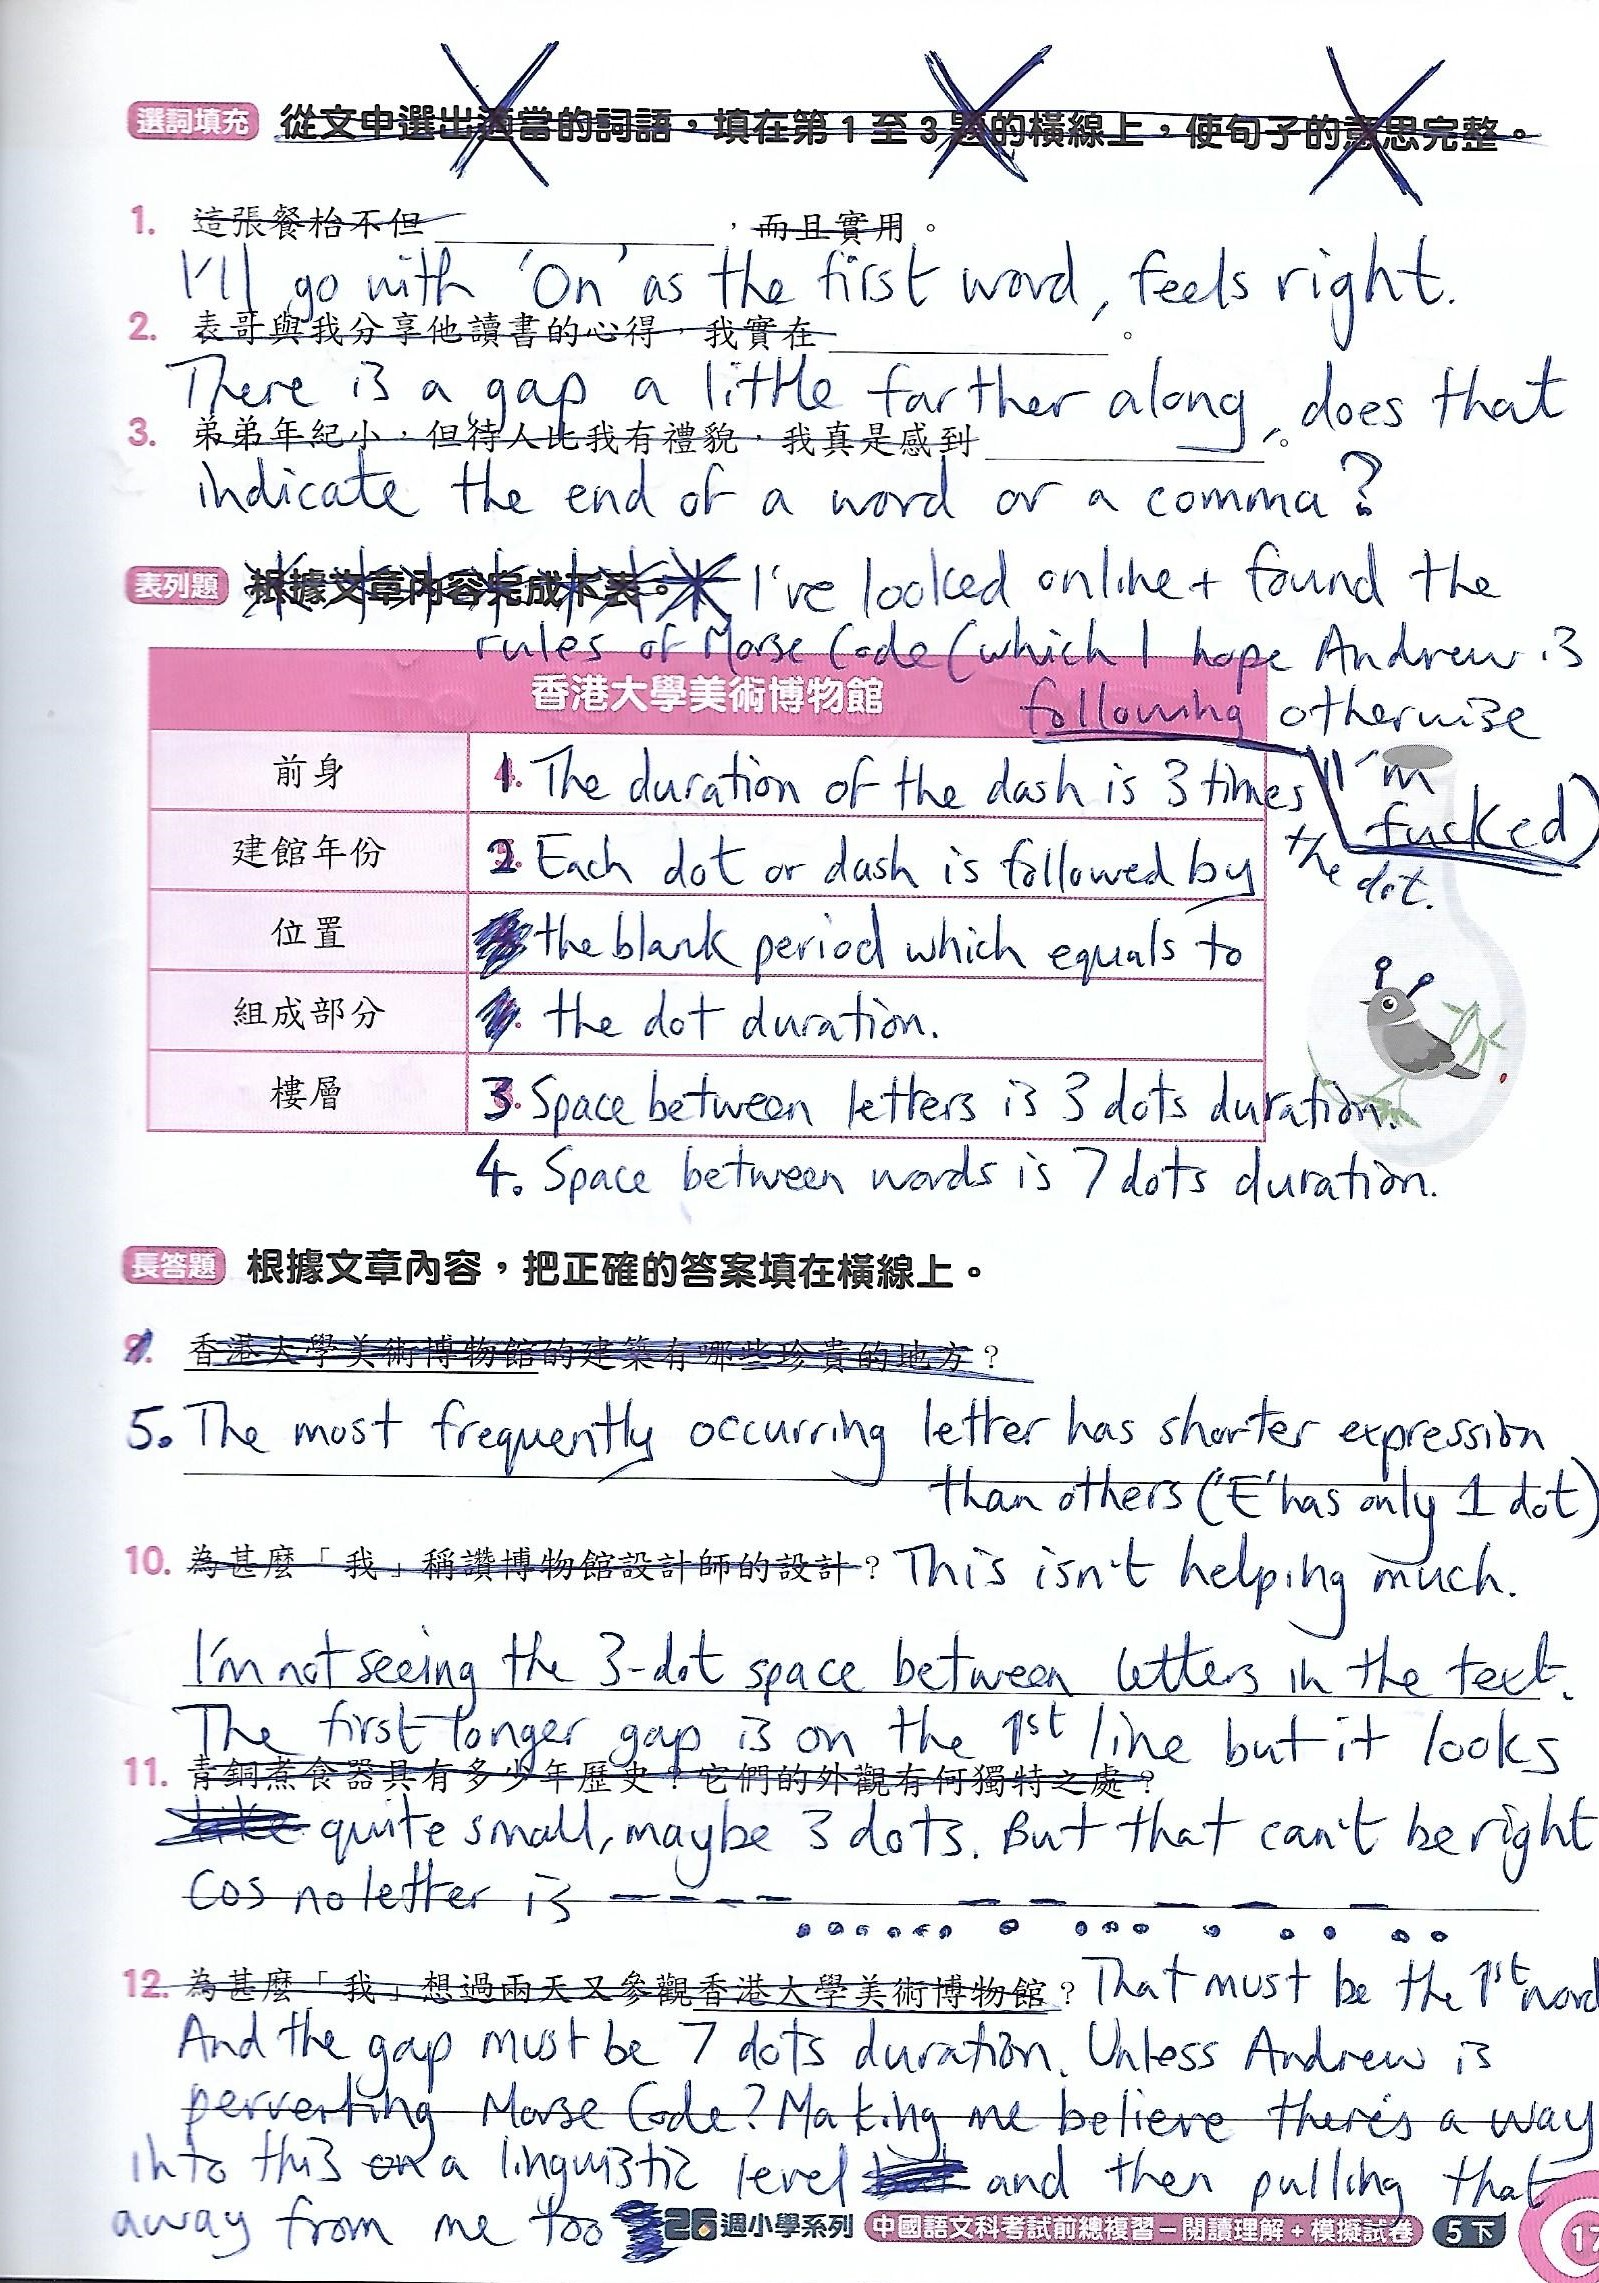 選詞填充 從文中選出適當的詞語，填在第1至3題的橫線上，使句子的意思完整。
1. 這張餐枱不但____________，而且實用。
I'll go with 'On' as the first word, feels right.
2. 表哥與我分享他讀書的心得，我實在____________。
There is a gap a little farther along, does that
3. 弟弟年紀小，但待人比我有禮貌，我真是感到____________。
indicate the end of a word or a comma?
表列題 根據文章內容完成下表。 I've looked online + found the
rules of Morse Code (which I hope Andrew is
香港大學美術博物館 following otherwise
前身 1. The duration of the dash is 3 times I'm
fucked)
the dot.
建館年份 2 Each dot or dash is followed by
位置 the blank period which equals to
組成部分 the dot duration.
樓層 3. Space between letters is 3 dots duration.
4. Space between words is 7 dots duration.
長答題 根據文章內容，把正確的答案填在橫線上。
9. 香港大學美術博物館的建築有哪些珍貴的地方？
5. The most frequently occurring letter has shorter expression
than others ('E' has only 1 dot)
10. 為甚麼「我」稱讚博物館設計師的設計？ This isn't helping much.
I'm not seeing the 3-dot space between letters in the text.
The first longer gap is on the 1st line but it looks
11. 青銅煮食器具有多少年歷史？它們的外觀有何獨特之處？
like quite small, maybe 3 dots. But that can't be right
cos no letter is — — — — ...... — . — ... — . — .. — ..
12. 為甚麼「我」想過兩天又參觀香港大學美術博物館？ That must be the 1st word
And the gap must be 7 dots duration. Unless Andrew is
perverting Morse Code? Making me believe there's a way
into this on a linguistic level but and then pulling that
away from me too
26週小學系列 中國語文科考試前總複習－閱讀理解＋模擬試卷 5下 17